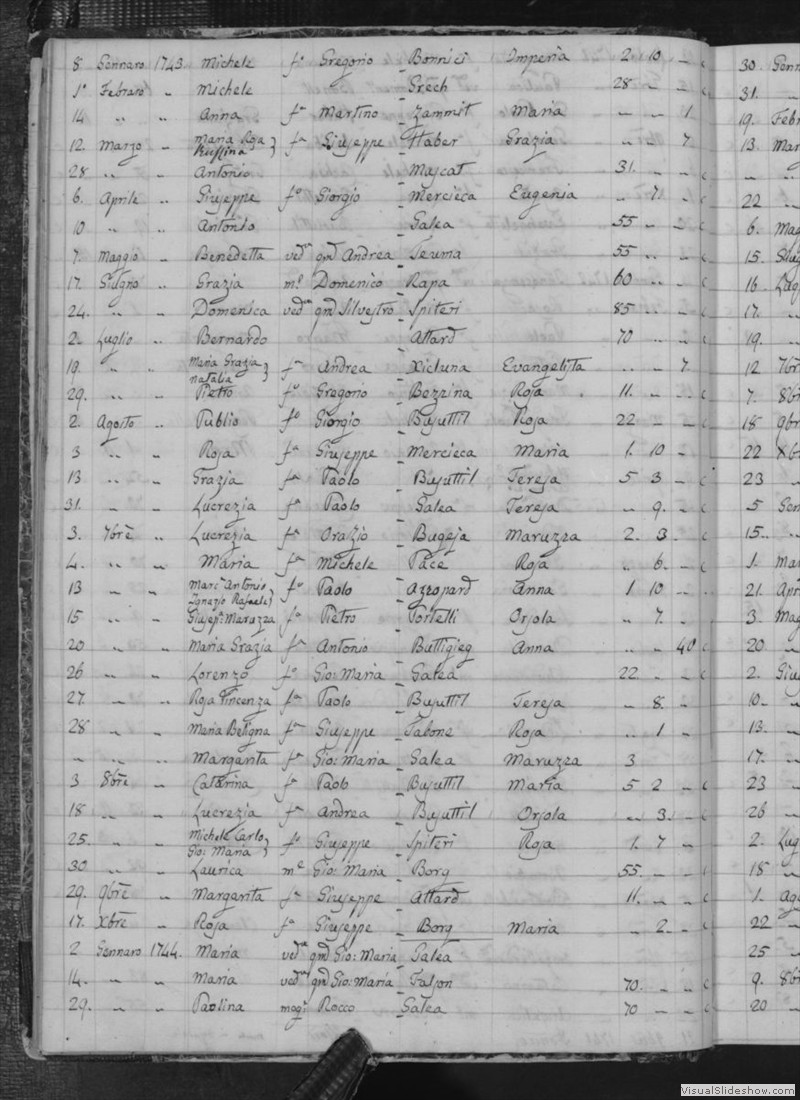 8 Gennaro 1743 Michele f° Gregorio Bonnici Imperia 2. 10 „ c
1° Febraro „ Michele Grech 28 „ „ c
14 „ „ Anna fª Martino Zammit Maria „ „ 1.
12. Marzo „ Maria Rosa Ruffina } fª Giuseppe Haber Grazia „ „ 7.
28 „ „ Antonio Mascat 31. „ „ c
6. Aprile „ Giuseppe f° Giorgio Mercieca Eugenia „ 7. „ c
10 „ „ Antonio Galea 55 „ „ c
7. Maggio „ Benedetta vedª qm̃ Andrea Teuma 55 „ „ c
17. Giugno „ Grazia m.e Domenico Rapa 60 „ „ c
24. „ „ Domenica vedª qm̃ Silvestro Spiteri 85 „ „ c
2. Luglio „ Bernardo Attard 70 „ „ c
19. „ „ Maria Grazia Natalia } fª Andrea Xicluna Evangelista „ „ 7.
29. „ „ Pietro f° Gregorio Bezzina Rosa 11. „ „ c
2. Agosto „ Publio f° Giorgio Busuttil Rosa 22 „ „ c
3 „ „ Rosa fª Giuseppe Mercieca Maria 1. 10 „
13 „ „ Grazia fª Paolo Busuttil Teresa 5 3 „ c
31. „ „ Lucrezia fª Paolo Galea Teresa „ 9. „ c
3. 7brẽ „ Lucrezia fª Orazio Bugeja Maruzza 2. 3. „ c
4. „ „ Maria fª Michele Pace Rosa „ 6. „ c
13 „ „ Marc' Antonio Ignazio Rafaele } f° Paolo Azzopard Anna 1 10 „
15 „ „ Giusep.ª Maruzza fª Pietro Portelli Orsola „ 7. „
20 „ „ Maria Grazia fª Antonio Buttigieg Anna „ „ 40 c
26 „ „ Lorenzo f° Gio: Maria Galea 22 „ „ c
27. „ „ Rosa Vincenza fª Paolo Busuttil Teresa „ 8. „
28 „ „ Maria Beligna fª Giuseppe Tabone Rosa „ 1 „
„ „ „ Margarita fª Gio: Maria Galea Maruzza 3
3 8brẽ „ Catarina fª Paolo Busuttil Maria 5 2 „ c
18 „ „ Lucrezia fª Andrea Busuttil Orsola „ 3. „ c
25. „ „ Michele Carlo Gio: Maria } f° Giuseppe Spiteri Rosa 1. 7 „
30 „ „ Laurica m.e Gio: Maria Borg 55. „ „ c
29. 9brẽ „ Margarita fª Giuseppe Attard 11. „ „ c
17. Xbrẽ „ Rosa fª Giuseppe Borg Maria „ 2. „ c
2 Gennaro 1744. Maria vedª qm̃ Gio: Maria Galea
14. „ „ Maria vedª qm̃ Gio: Maria Falson 70. „ „ c
29. „ „ Paolina mog. Rocco Galea 70 „ „ c
30 Genn
31. „
19. Febr
13. Mar
„ „
22 „
6. Mag
15. Giug
16. Lug
17. „
19. „
12 7br
7. 8br
18 9br
22 Xbr
23 „
5 Gen
15. „
1. Mar
21. Apr
3. Mag
20 „
2. Giu
10. „
13. „
17. „
23 „
26 „
2. Lug
18 „
1. Ago
22 „
25 „
9. 8br
20 „
VisualSlideshow.com